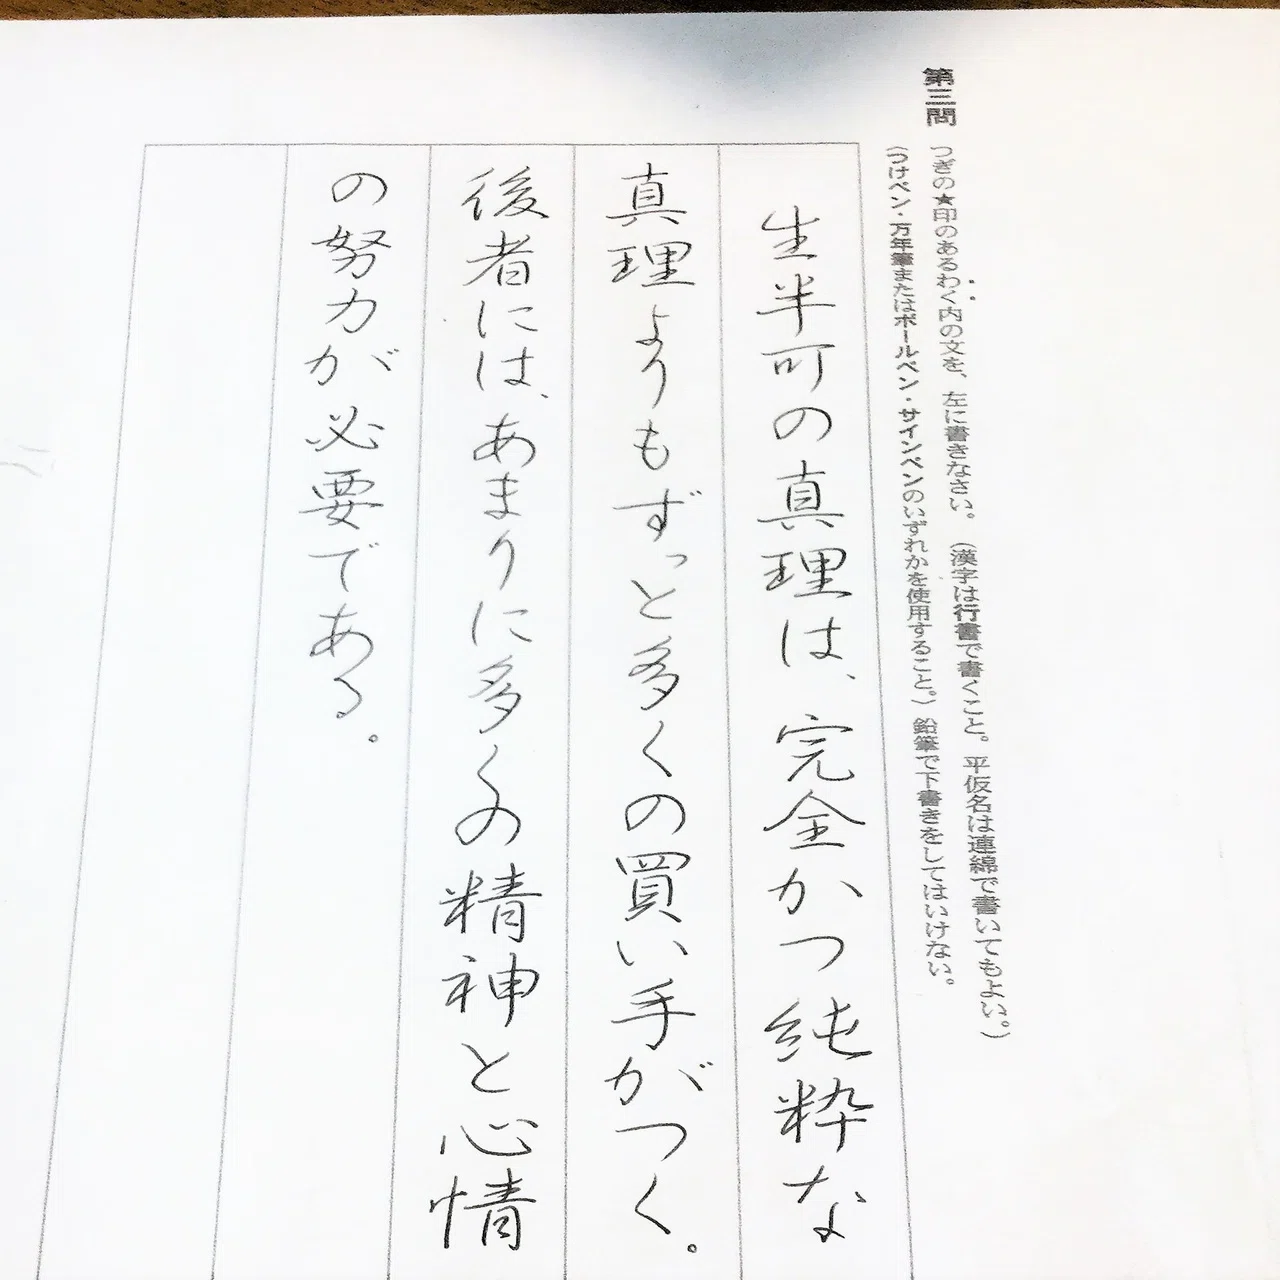 第三問
つぎの★印のあるわく内の文を、左に書きなさい。(漢字は行書で書くこと。平仮名は連綿で書いてもよい。)
(つけペン・万年筆またはボールペン・サインペンのいずれかを使用すること。)鉛筆で下書きをしてはいけない。
生半可の真理は、完全かつ純粋な
真理よりもずっと多くの買い手がつく。
後者には、あまりに多くの精神と心情
の努力が必要である。